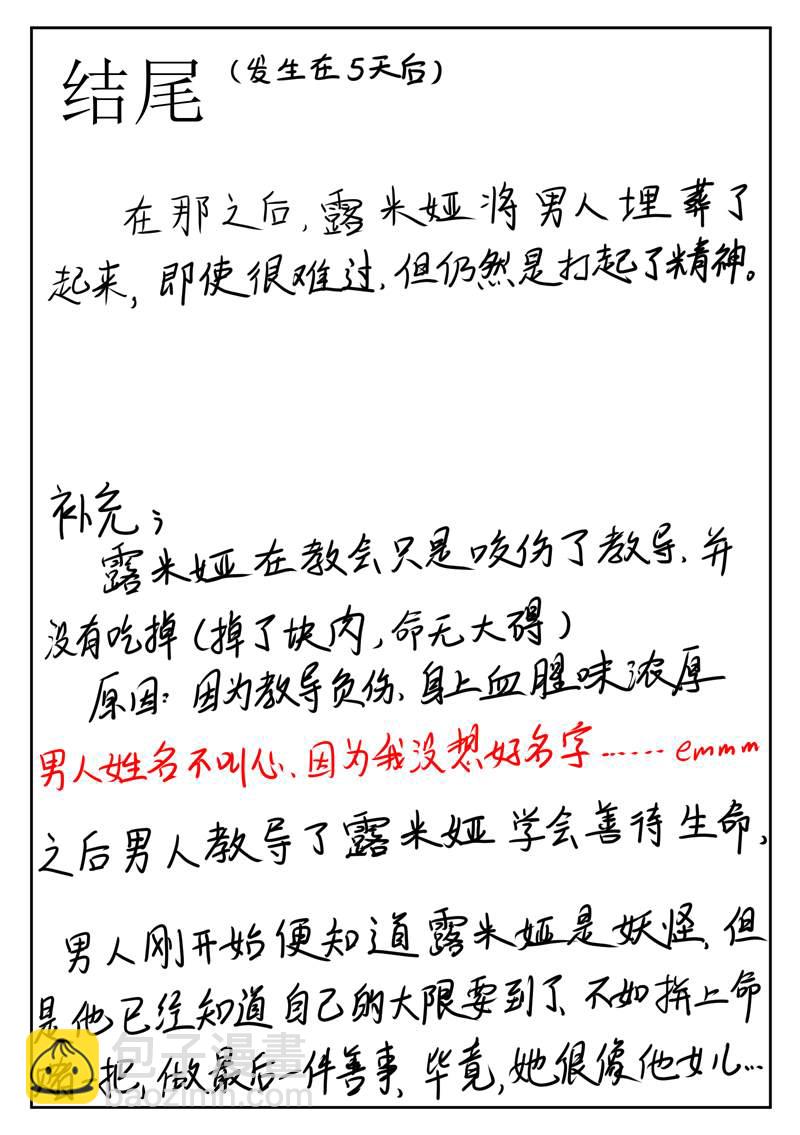 结尾（发生在5天后）
在那之后,露米娅将男人埋葬了
起来,即使很难过,但仍然是打起了精神。
补充;
露米娅在教会只是咬伤了教导、并
没有吃掉(掉了块肉,命无大碍)
原因:因为教导负伤、身上血腥味浓厚
男人姓名不叫心、因为我没想好名字……emmm
之后男人教导了露米娅学会善待生命,
男人刚开始便知道露米娅是妖怪、但
是他已经知道自己的大限要到了、不如拼上命
赌一把,做最后一件善事、毕竟,她很像他女儿...
包子漫畫
baozimh.com